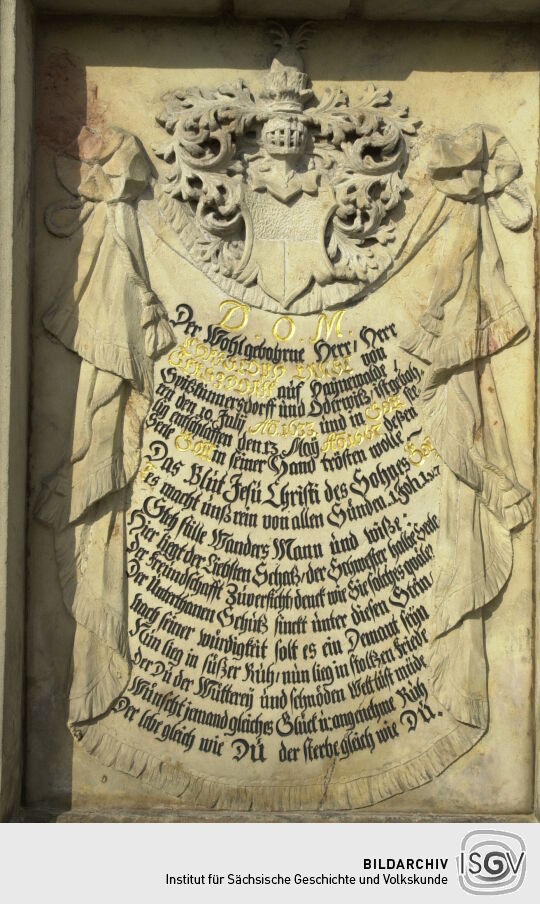 D. O. M.
Der Wohlgebohrne Herr/ Herr
von
auf Hainewalde/
Spitzkunnersdorff und Oderwitz/ ist geboh/
ren den 10. July Aō. 1633. und in Gott se-
lig entschlaffen den 13. May Aō. deßen
Seele Gott in seiner Hand trösten wolle
Das Blut Jesu Christi des Sohnes Got
tes macht unß rein von allen Sündn. 1. Joh. 1. v. 7
Steh stille Wanders Mann und wiße:
Hier liegt der Liebsten Schatz/ der Schwester halbe Seele
Der Freundschafft Zuversicht/ denck wie Sie solches quäle?
Der Unterthanen Schutz sinckt unter diesen Stein/
nach seiner würdigkeit solt es ein Demant seyn
Nun lieg in süßer Ruh/ nun lieg in stoltzen Friede
der Du der Wütterey und schnöden Welt bist müde
Wünscht jemand gleiches Glück u: angenehme Ruh
Der lebe gleich wie DU der sterbe gleich wie DU.
BILDARCHIV
Institut für Sächsische Geschichte und Volkskunde
ISGV